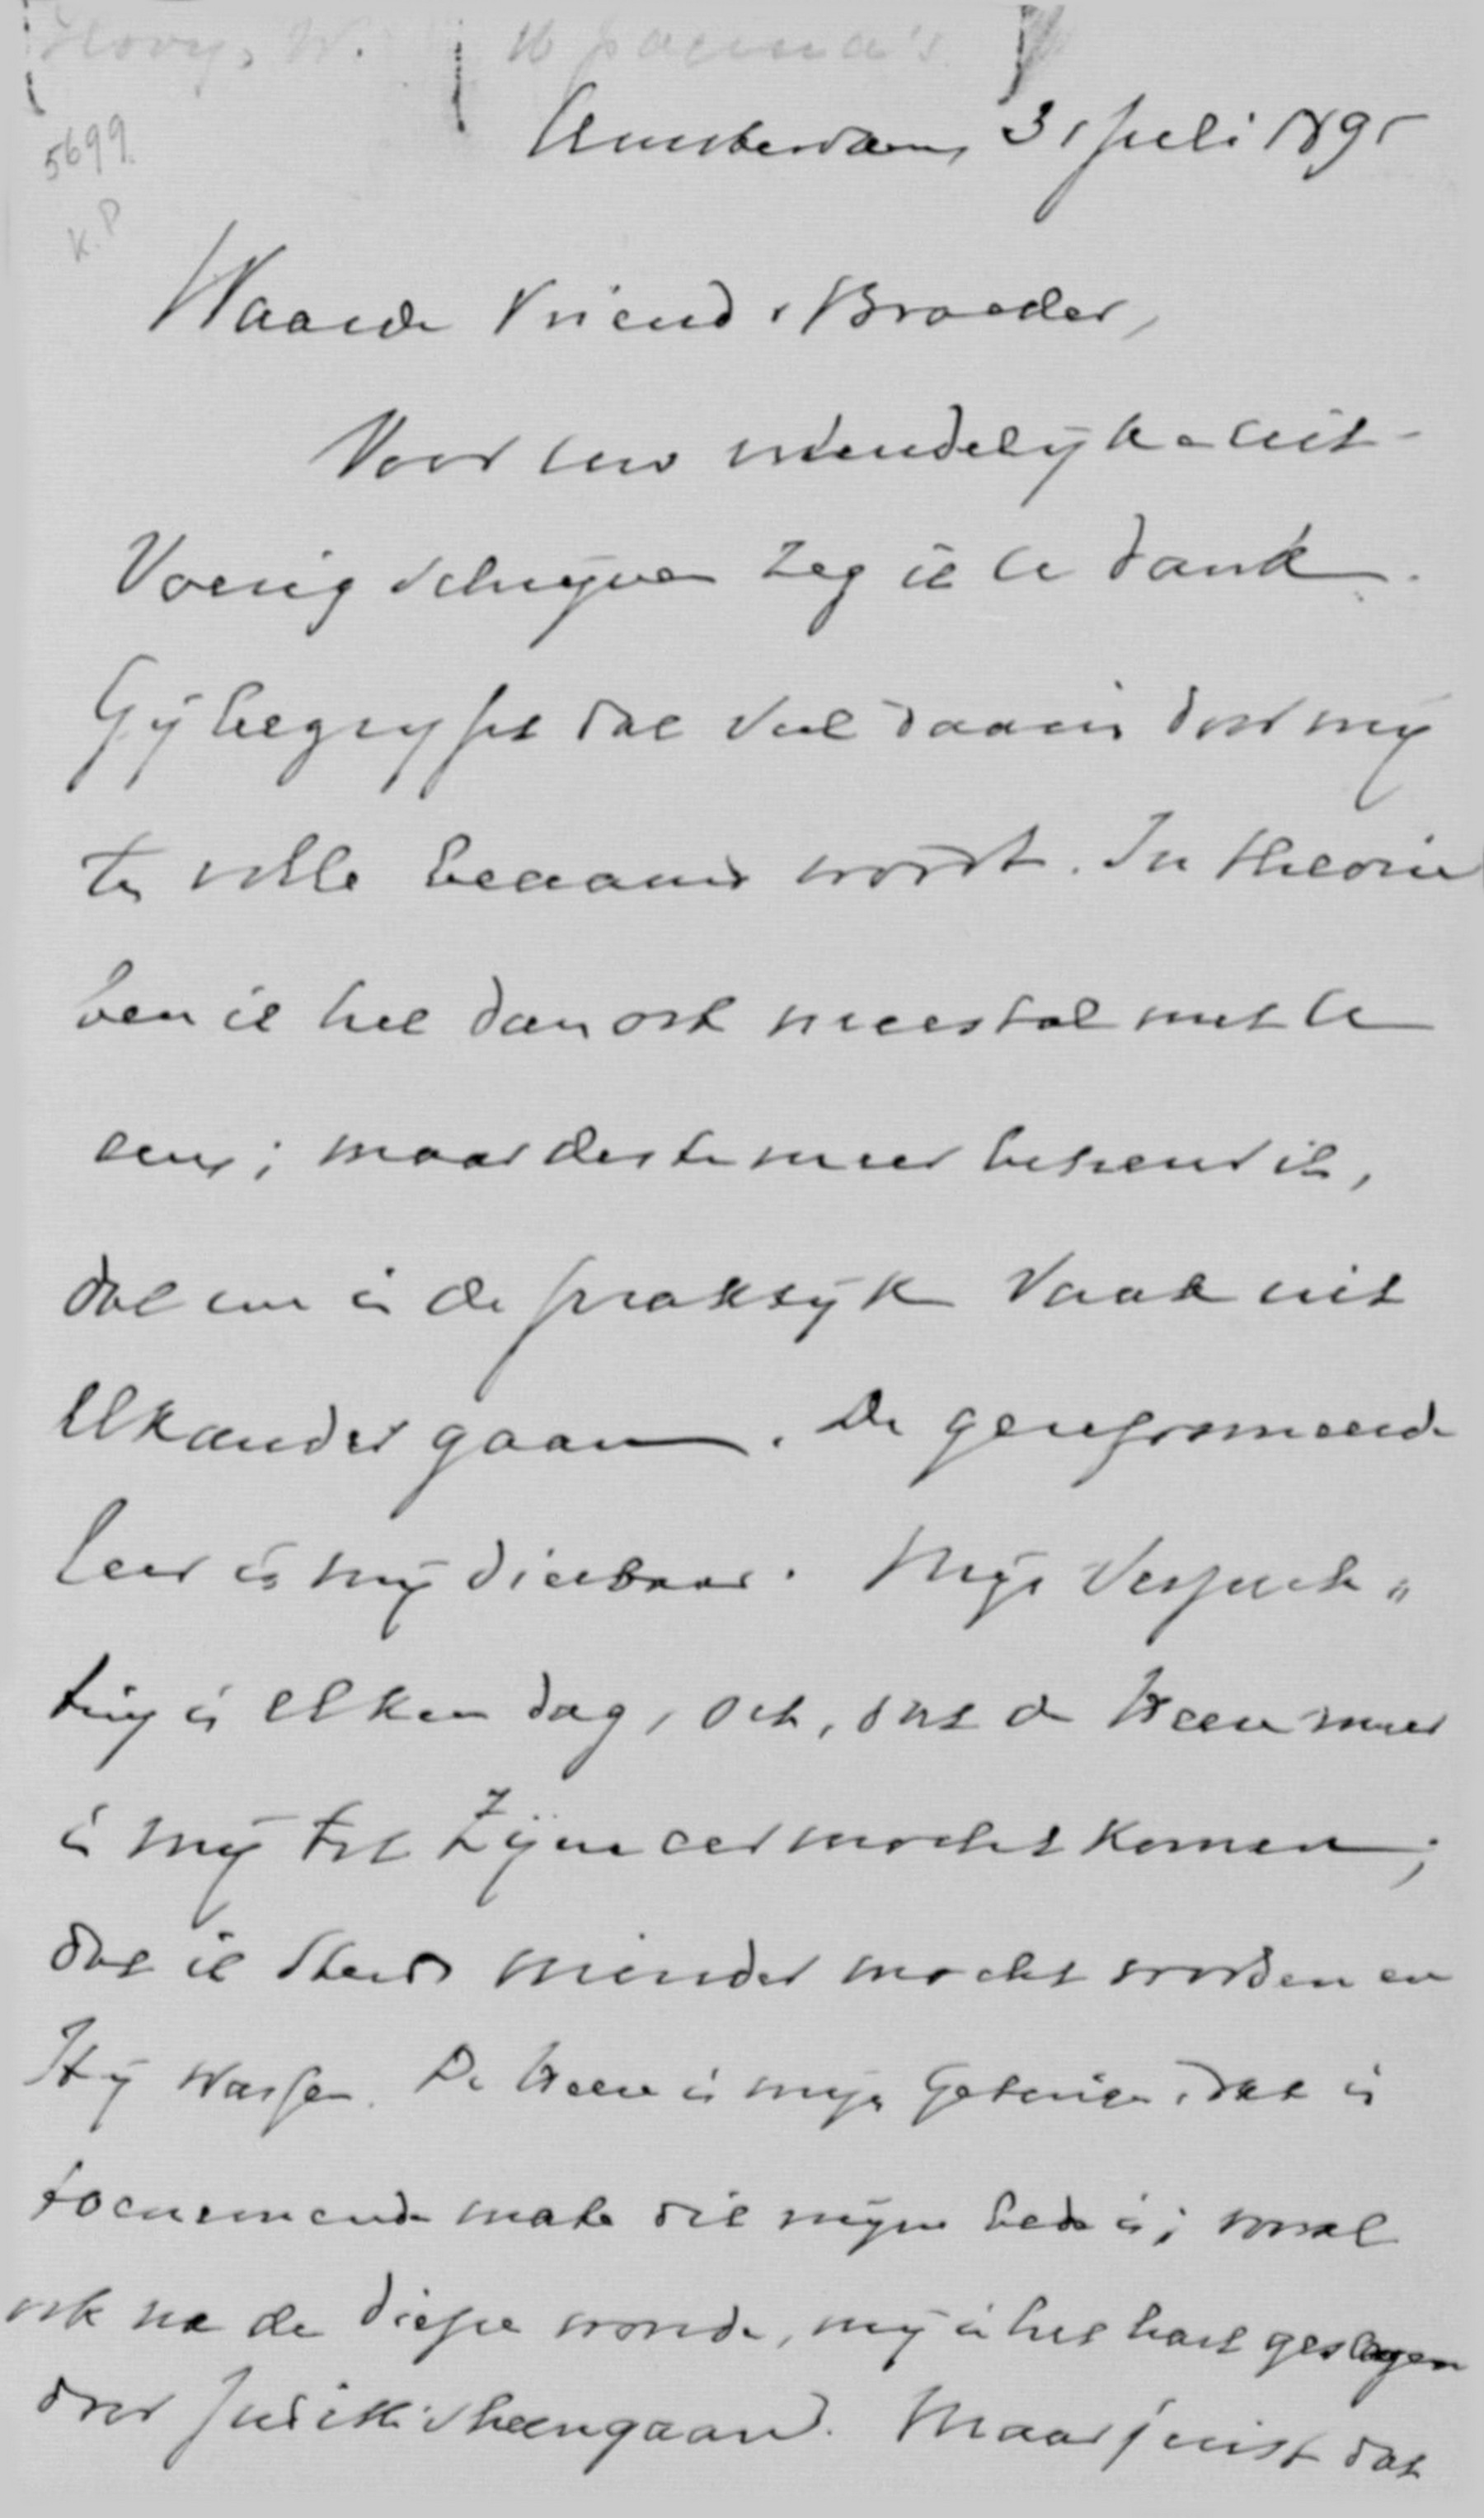 Hovy, W. 16 pagina's
Amsterdam, 31 Juli 1895
5699.
K.P
Waarde Vriend & Broeder,
Voor uw vriendelijk & uit-
voerig schrijven zeg ik U dank.
Gij begrijpt dat veel daarin door mij
ten volle beaamd wordt. In theorie
ben ik het dan ook meestal met U
eens; maar des te meer betreur ik,
dat we in de praktijk vaak uit
elkander gaan. De gereformeerde
leer is mij dierbaar. Mijn verzuch„
ting is elken dag, och, dat de Heere meer
in mij tot Zijne eer mocht komen;
dat ik steeds minder mocht worden en
Hij wassen. De Heere is mijn getuige, dat in
toenemende mate dit mijne bede is; vooral
ook na de diepe wonde, mij in het hart geslagen
door heengaan. Maar juist dat